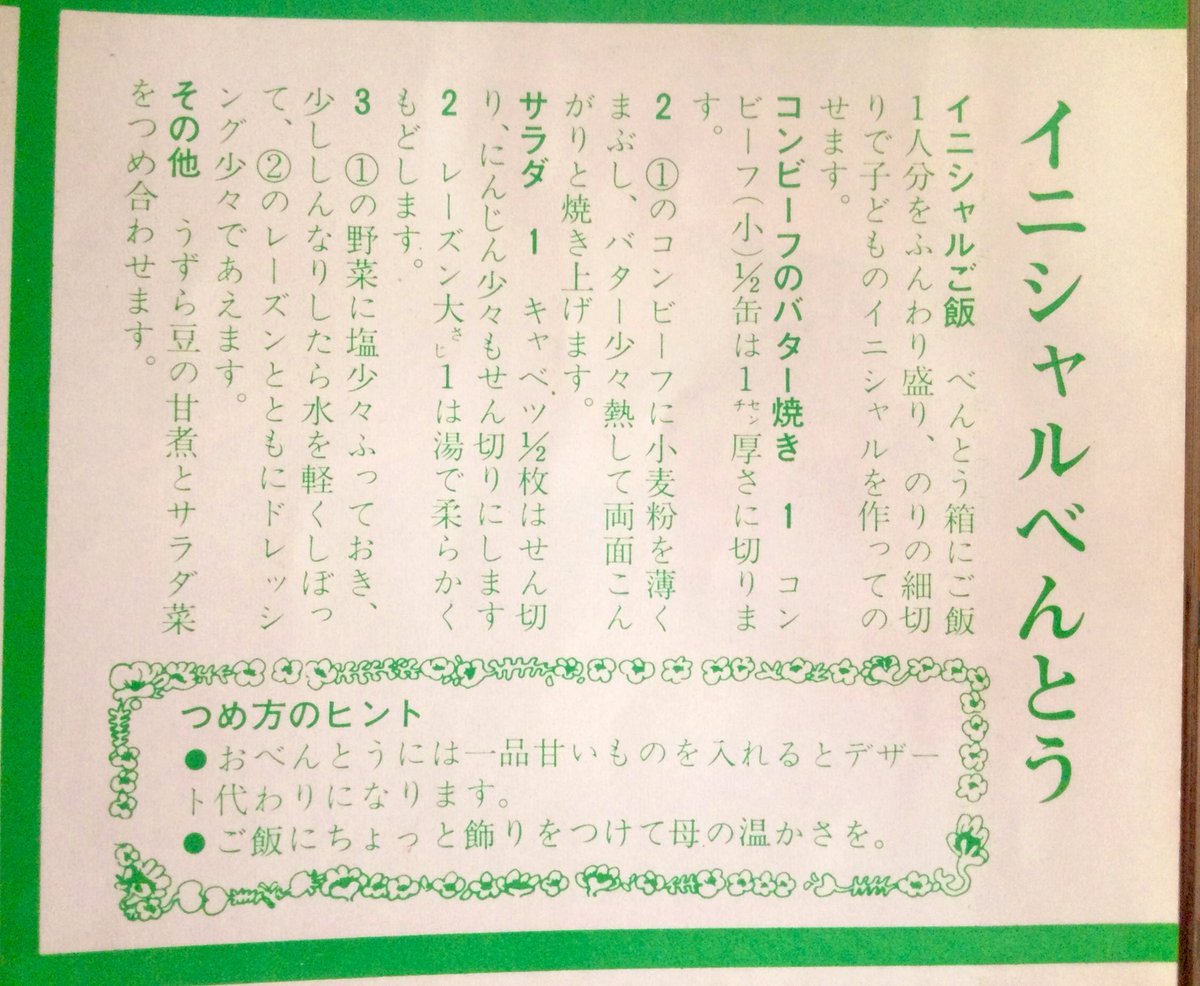 イニシャルべんとう
イニシャルご飯　べんとう箱にご飯
1人分をふんわり盛り、のりの細切
りで子どものイニシャルを作っての
せます。
コンビーフのバター焼き　1　コン
ビーフ(小)½缶は1センチ厚さに切りま
す。
2　①のコンビーフに小麦粉を薄く
まぶし、バター少々熱して両面こん
がりと焼き上げます。
サラダ　1　キャベツ½枚はせん切
り、にんじん少々もせん切りにします
2　レーズン大さじ1は湯で柔らかく
もどします。
3　①の野菜に塩少々ふっておき、
少ししんなりしたら水を軽くしぼっ
て、②のレーズンとともにドレッシ
ング少々であえます。
その他　うずら豆の甘煮とサラダ菜
をつめ合わせます。
つめ方のヒント
●おべんとうには一品甘いものを入れるとデザー
ト代わりになります。
●ご飯にちょっと飾りをつけて母の温かさを。